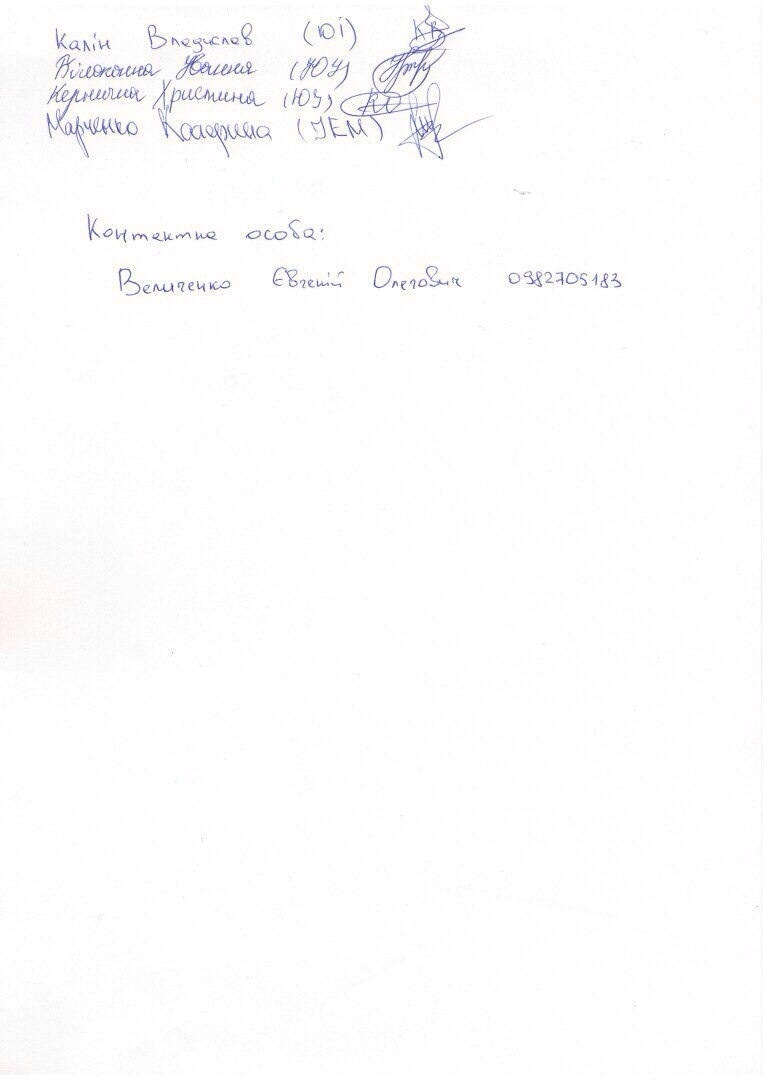 Калін Владислав (ЮІ)
Білоконна (ЮУ)
Кернична Христина (ЮУ)
Марченко (ІЕМ)
Контактна особа:
Величенко Євгеній Олегович 0982705183